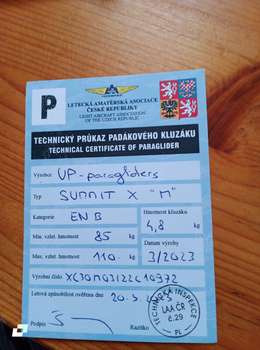 P
LETECKÁ AMATÉRSKÁ ASOCIACE
ČESKÉ REPUBLIKY
LIGHT AIRCRAFT ASSOCIATION
OF THE CZECH REPUBLIC
TECHNICKÝ PRŮKAZ PADÁKOVÉHO KLUZÁKU
TECHNICAL CERTIFICATE OF PARAGLIDER
Výrobce UP-paragliders
Typ SUMMIT X "M"
Kategorie EN B
Hmotnost kluzáku
4,8 kg
Min. vzlet. hmotnost 85 kg
Datum výroby
3/2023
Max. vzlet. hmotnost 110 kg
Výrobní číslo
Letová způsobilost ověřena dne 20.3.
Podpis
Razítko
TECHNICKÁ INSPEKCE
LAA ČR
č.29
PL